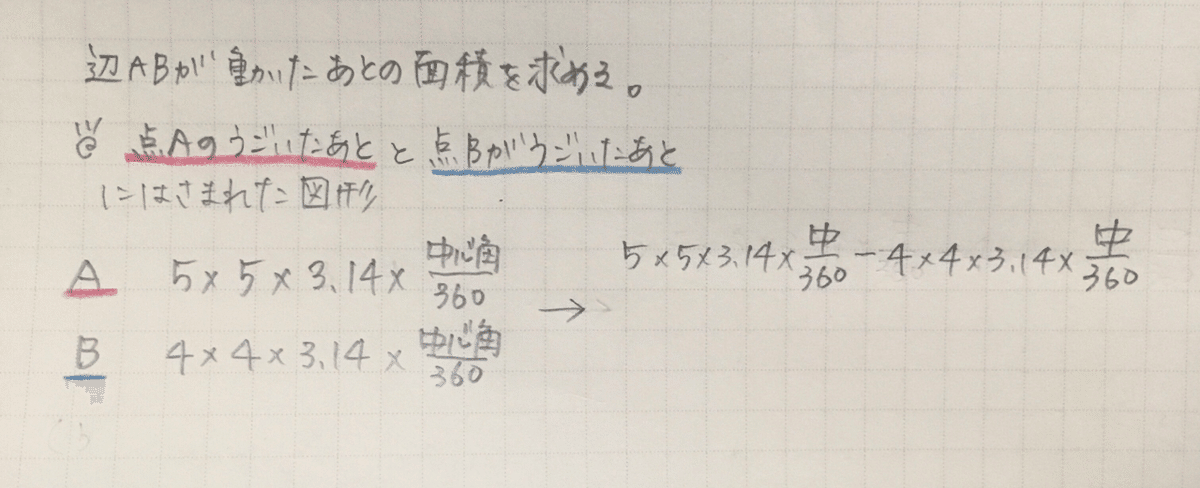 辺ABが動いたあとの面積を求める。
点Aのうごいたあとと点Bがうごいたあと
にはさまれた図形
A 5×5×3.14×中心角/360 → 5×5×3.14×中/360-4×4×3.14×中/360
B 4×4×3.14×中心角/360